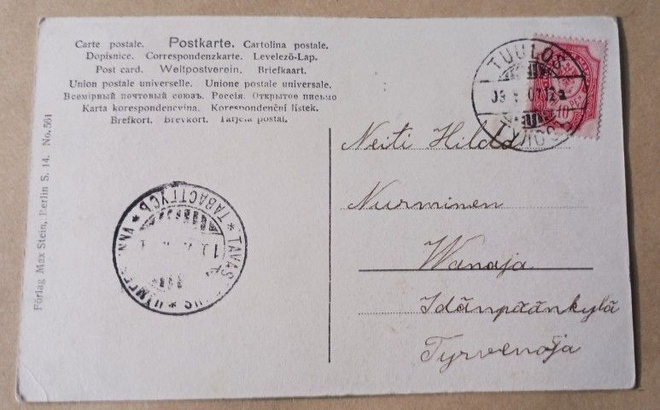 Carte postale. Postkarte. Cartolina postale.
Dopisnice. Correspondenzkarte. Levelező-Lap.
Post card. Weltpostverein. Briefkaart.
Union postale universelle. Unione postale universale.
Всемірный почтовый союзъ. Россія. Открытое письмо
Karta korespondencyjna. Korespondenční lístek.
Brefkort. Brevkort. Tarjeta postal.
Förlag Max Stein, Berlin S. 14. No. 564
TAVASTEHUS * ТАВАСТГУСЪ *
TUULOS
ТУЛОСЪ
10
Neiti Hilda
Nurminen
Wanaja
Idänpäänkylä
Tyrvenoja